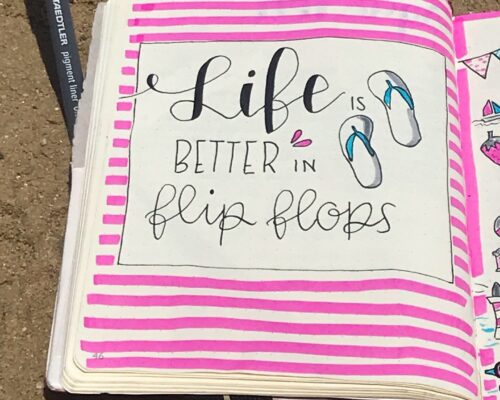 STAEDTLER pigment liner
Life IS
BETTER IN
flip flops
46